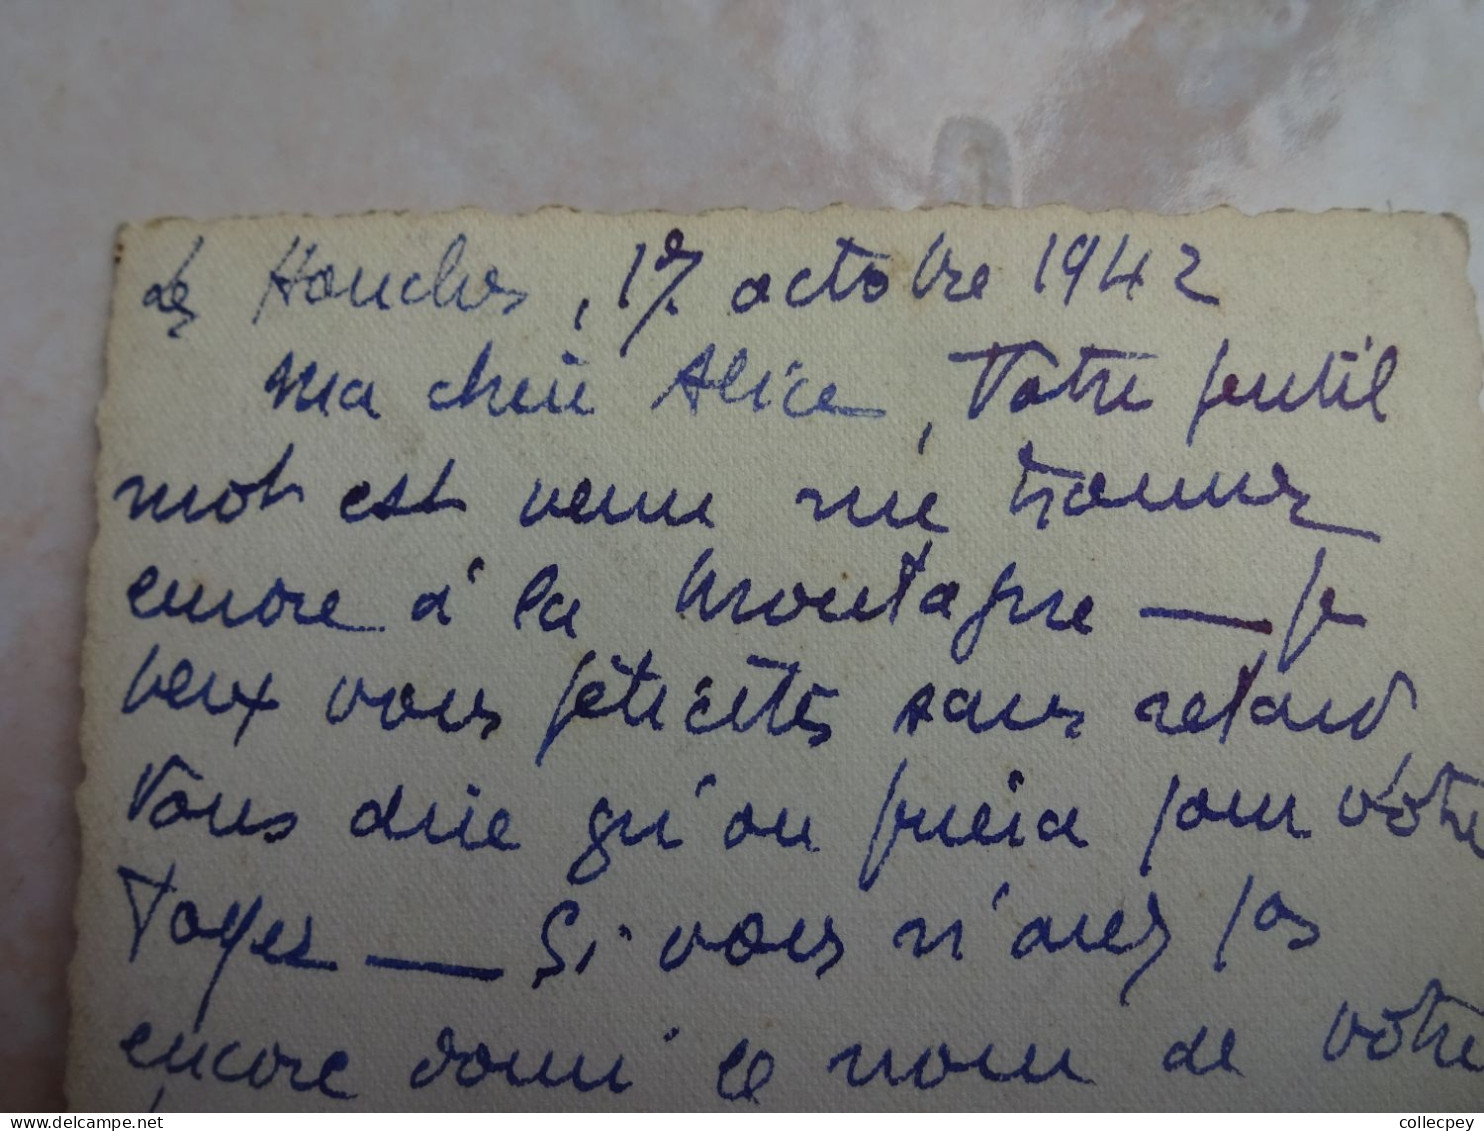 Les Houches, 17 octobre 1942
Ma chère Alice, Votre gentil
mot est venu me trouver
encore à la montagne — Je
veux vous féliciter sans retard
Vous dire qu'on priera pour votre
foyer — Si vous n'avez pas
encore donné le nom de votre
collecpey